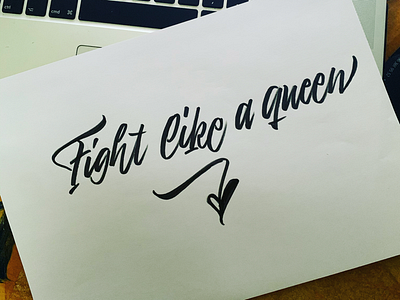 Fight like a queen